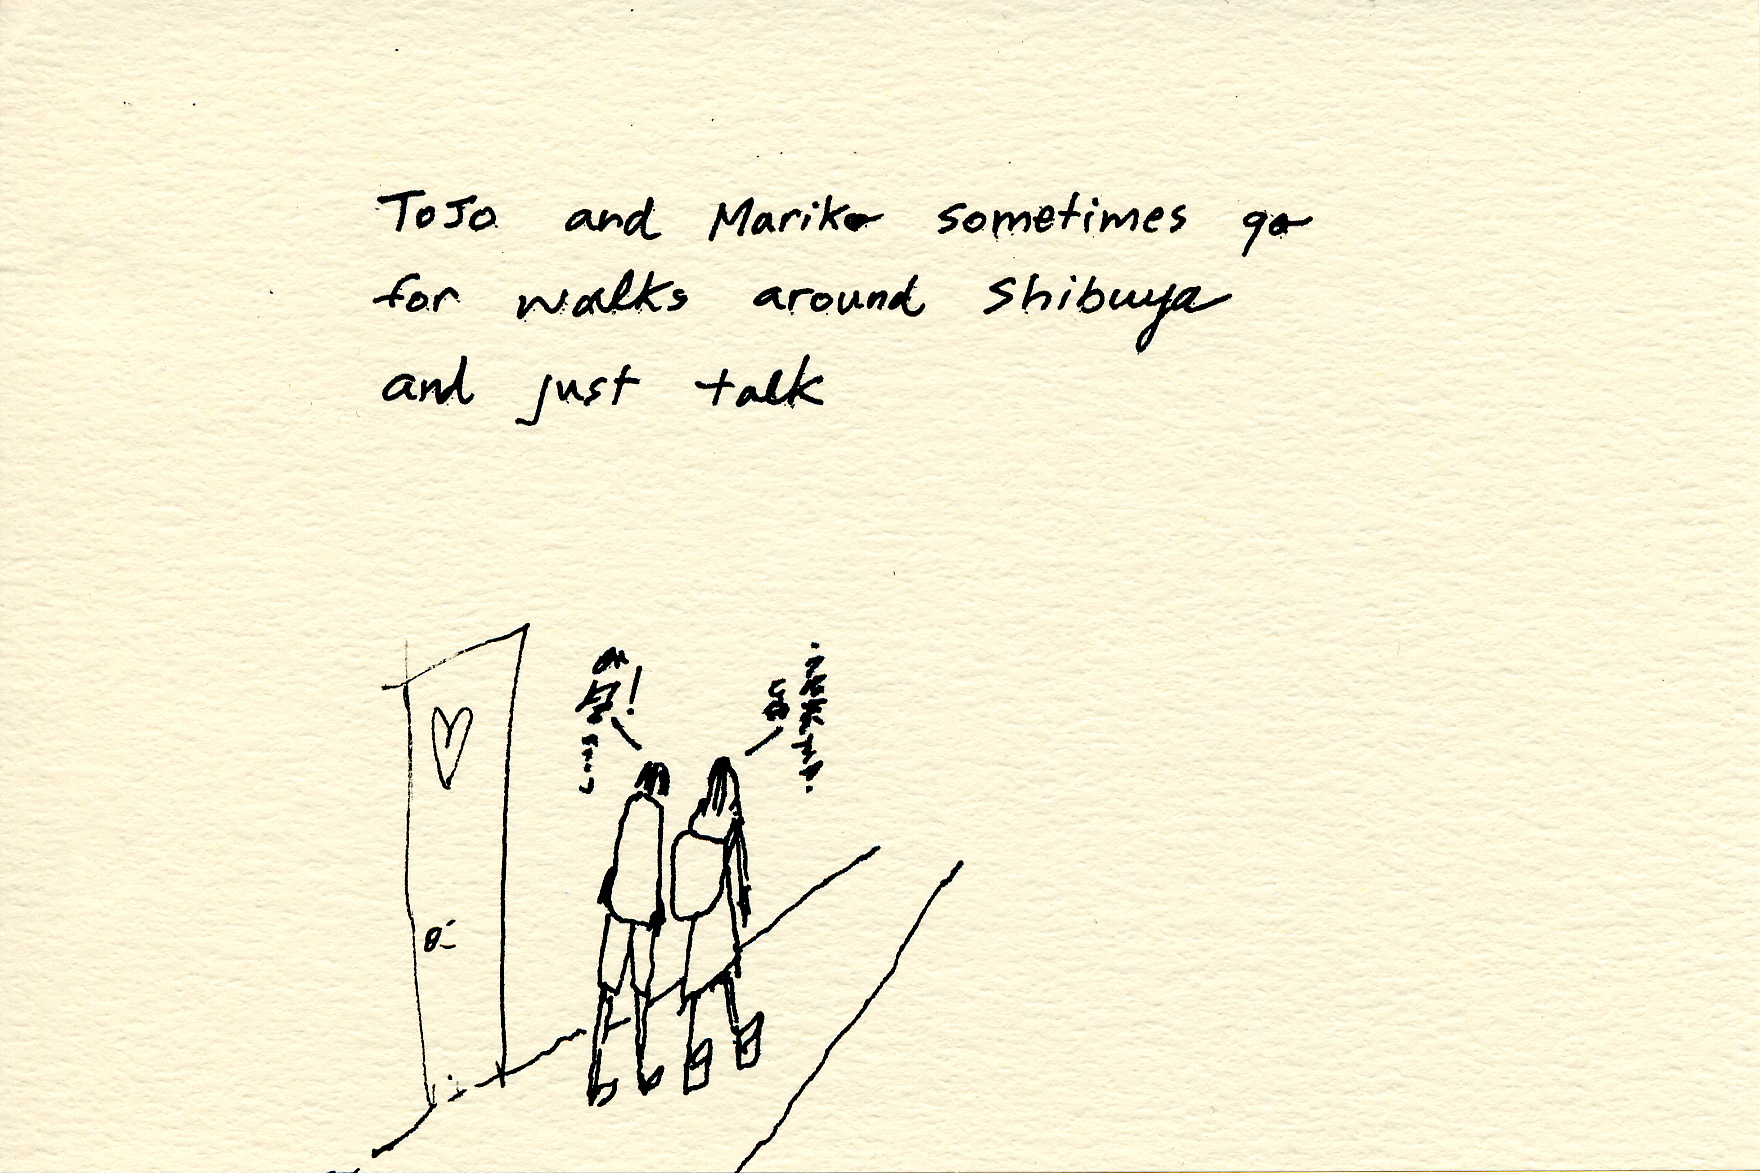 ToJo and Mariko sometimes go
for walks around Shibuya
and just talk